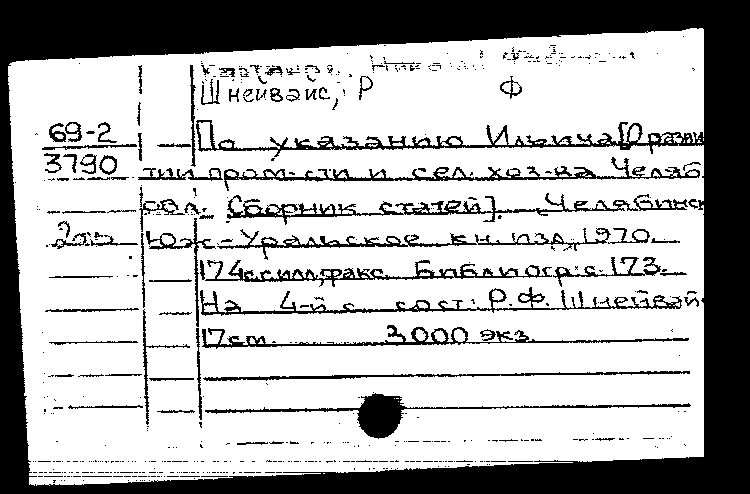 Шнейвайс, Р Ф
69-2
3790
По указанию Ильича [О разви
тии пром-сти и сел. хоз-ва Челяб
обл. Сборник статей]. Челябинск
2 Юж-Уральское кн. изд, 1970.
174с. с илл, факс. Библиогр: с. 173.
На 4-й с сост: Р.Ф. Шнейвай
17см. 3000 экз.